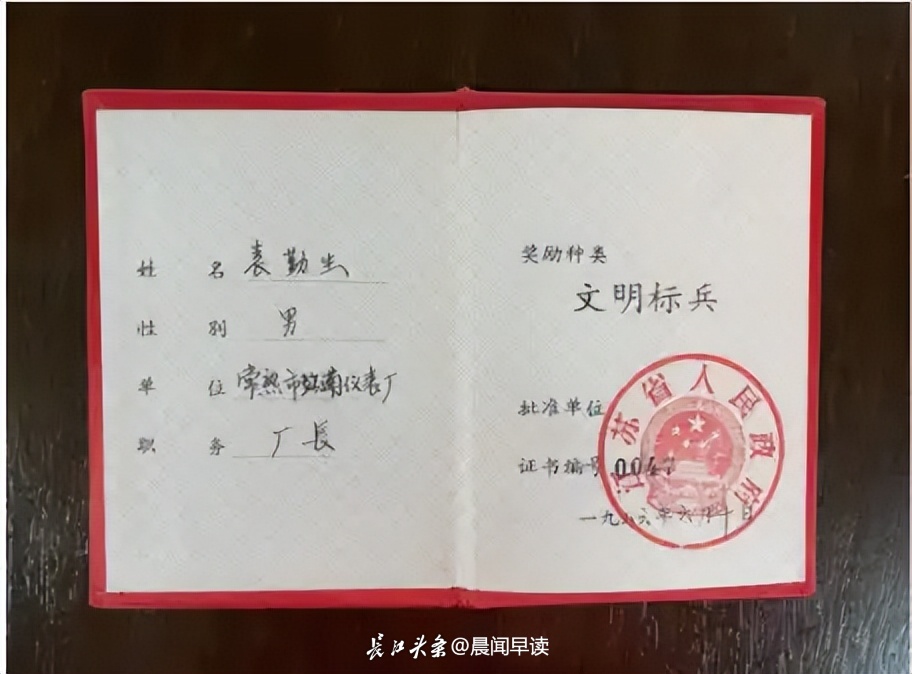 姓 名 袁勤生
性 别 男
单 位 常熟市南仪表厂
职 务 厂長
奖励种类
文明标兵
批准单位
江苏省人民政府
证书编号
一九八六年六月十日
长江头条@晨闻早读